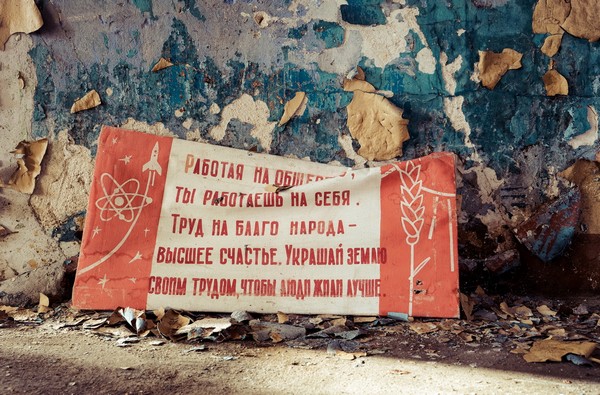 Работая на общество,
ты работаешь на себя.
Труд на благо народа –
высшее счастье. Украшай землю
своим трудом, чтобы люди жили лучше.